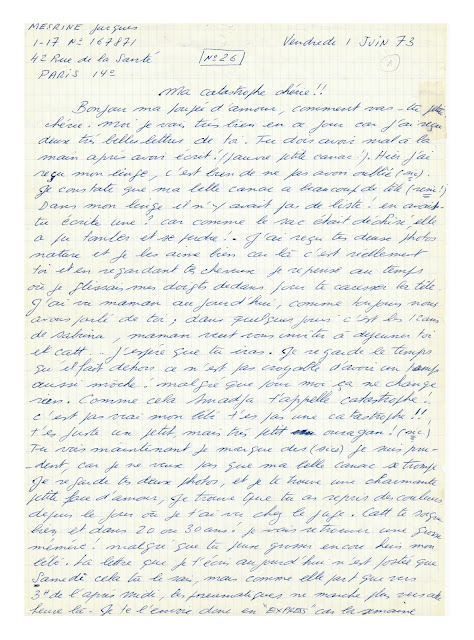 MESRINE Jacques
1-17 N° 167871
42 Rue de la Santé
PARIS 14e
N° 26
Vendredi 1 JUIN 73
1
Ma catastrophe chérie !!
Bonjour ma poupée d'amour, comment vas-tu petite
chérie. Moi je vais très bien en ce jour car j'ai reçu
deux très belles lettres de toi. Tu dois avoir mal à la
main après avoir écrit ! (pauvre petite canac !). Hier j'ai
reçu mon linge, c'est bien de ne pas avoir oublié (oui).
Je constate que ma belle canac a beaucoup de tête
Dans mon linge il n'y avait pas de liste ! en avait-
tu écrite une ? car comme le sac était déchiré elle
a pu tomber et se perdre !. J'ai reçu tes deux photos
nature et je les aime bien car là c'est réellement
toi et en regardant tes cheveux je repense au temps
où je glissais mes doigts dedans pour te caresser la tête.
J'ai vu maman aujourd'hui, comme toujours nous
avons parlé de toi ; dans quelques jours c'est les 12 ans
de Sabrina, maman veut vous inviter à déjeuner toi
et Catt... j'espère que tu iras. Je regarde le temps
qu'il fait dehors ce n'est pas croyable d'avoir un temps
aussi moche ! malgré que pour moi ça ne change
rien. Comme cela Smadja t'appelle catastrophe !
c'est pas vrai mon bébé t'es pas une catastrophe !!
t'es juste un petit, mais très petit ouragan ! (oui)
Tu vois maintenant je marque des (oui) je suis pru-
dent, car je ne veux pas que ma belle canac se trompe
Je regarde tes deux photos, et je te trouve une charmante
petite d'amour, je trouve que tu as repris des couleurs
depuis le jour où je t'ai vu chez le juge. Catt te soigne
bien et dans 20 ou 30 ans ! je vais retrouver une grosse
mémère ! malgré que tu peux grossir encore hein mon
bébé. La lettre que je t'écris aujourd'hui n'est postée que
Samedi cela tu le sais, mais comme elle part que vers
3H de l'après midi, les pneumatiques ne marche plus vers cette
heure là. Je te l'envoie donc en "EXPRESS" car la semaine